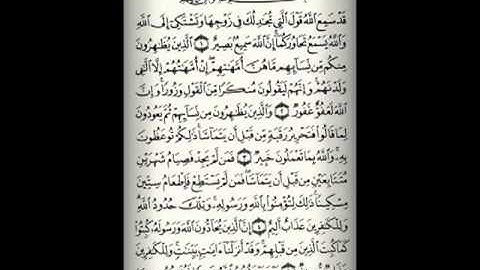 قَدْ سَمِعَ ٱللَّهُ قَوْلَ ٱلَّتِى تُجَٰدِلُكَ فِى زَوْجِهَا وَتَشْتَكِىٓ إِلَى ٱللَّهِ
وَٱللَّهُ يَسْمَعُ تَحَاوُرَكُمَآ إِنَّ ٱللَّهَ سَمِيعٌۢ بَصِيرٌ ١ ٱلَّذِينَ يُظَٰهِرُونَ
مِنكُم مِّن نِّسَآئِهِم مَّا هُنَّ أُمَّهَٰتِهِمْ إِنْ أُمَّهَٰتُهُمْ إِلَّا ٱلَّٰٓـِٔى
وَلَدْنَهُمْ وَإِنَّهُمْ لَيَقُولُونَ مُنكَرًا مِّنَ ٱلْقَوْلِ وَزُورًا وَإِنَّ
ٱللَّهَ لَعَفُوٌّ غَفُورٌ ٢ وَٱلَّذِينَ يُظَٰهِرُونَ مِن نِّسَآئِهِمْ ثُمَّ يَعُودُونَ
لِمَا قَالُوا۟ فَتَحْرِيرُ رَقَبَةٍ مِّن قَبْلِ أَن يَتَمَآسَّا ذَٰلِكُمْ تُوعَظُونَ
بِهِۦ وَٱللَّهُ بِمَا تَعْمَلُونَ خَبِيرٌ ٣ فَمَن لَّمْ يَجِدْ فَصِيَامُ شَهْرَيْنِ
مُتَتَابِعَيْنِ مِن قَبْلِ أَن يَتَمَآسَّا فَمَن لَّمْ يَسْتَطِعْ فَإِطْعَامُ سِتِّينَ
مِسْكِينًا ذَٰلِكَ لِتُؤْمِنُوا۟ بِٱللَّهِ وَرَسُولِهِۦ وَتِلْكَ حُدُودُ ٱللَّهِ
وَلِلْكَٰفِرِينَ عَذَابٌ أَلِيمٌ ٤ إِنَّ ٱلَّذِينَ يُحَآدُّونَ ٱللَّهَ وَرَسُولَهُۥ كُبِتُوا۟
كَمَا كُبِتَ ٱلَّذِينَ مِن قَبْلِهِمْ وَقَدْ أَنزَلْنَآ ءَايَٰتٍۭ بَيِّنَٰتٍ وَلِلْكَٰفِرِينَ